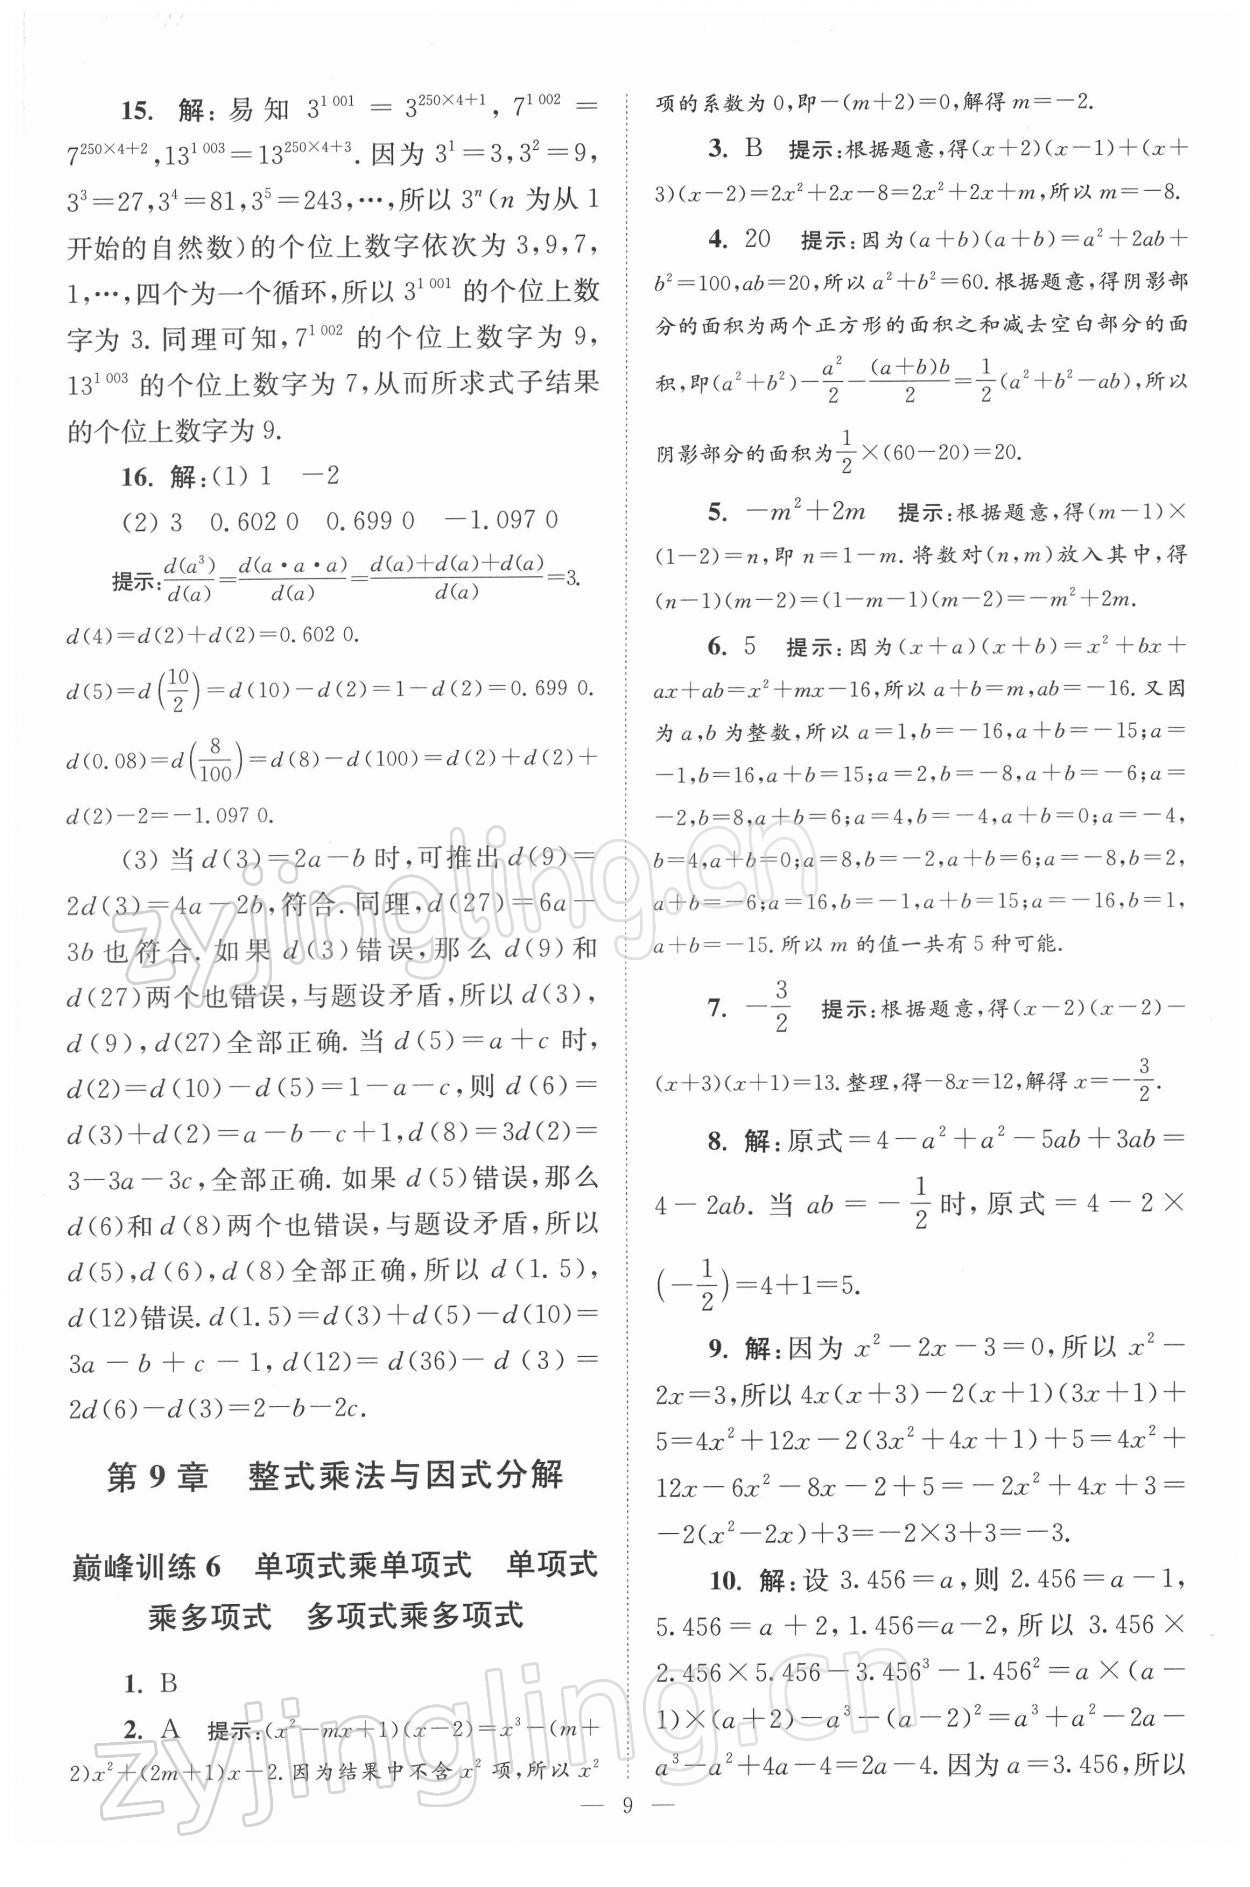 15. 解:易知 3^{1 001} = 3^{250×4+1}, 7^{1 002} =
7^{250×4+2}, 13^{1 003} = 13^{250×4+3}. 因为 3^1=3, 3^2=9,
3^3=27, 3^4=81, 3^5=243, …, 所以 3^n (n 为从 1
开始的自然数)的个位上数字依次为 3,9,7,
1,…,四个为一个循环,所以 3^{1 001} 的个位上数
字为 3. 同理可知, 7^{1 002} 的个位上数字为 9,
13^{1 003} 的个位上数字为 7,从而所求式子结果
的个位上数字为 9.
16. 解:(1) 1 −2
(2) 3 0.602 0 0.699 0 −1.097 0
提示: \frac{d(a^3)}{d(a)} = \frac{d(a·a·a)}{d(a)} = \frac{d(a)+d(a)+d(a)}{d(a)} =3.
d(4)=d(2)+d(2)=0.602 0.
d(5)=d(\frac{10}{2})=d(10)−d(2)=1−d(2)=0.699 0.
d(0.08)=d(\frac{8}{100})=d(8)−d(100)=d(2)+d(2)+
d(2)−2=−1.097 0.
(3) 当 d(3)=2a−b 时,可推出 d(9)=
2d(3)=4a−2b,符合.同理,d(27)=6a−
3b 也符合.如果 d(3)错误,那么 d(9)和
d(27)两个也错误,与题设矛盾,所以 d(3),
d(9),d(27)全部正确.当 d(5)=a+c 时,
d(2)=d(10)−d(5)=1−a−c,则 d(6)=
d(3)+d(2)=a−b−c+1,d(8)=3d(2)=
3−3a−3c,全部正确.如果 d(5)错误,那么
d(6)和 d(8)两个也错误,与题设矛盾,所以
d(5),d(6),d(8)全部正确,所以 d(1.5),
d(12)错误.d(1.5)=d(3)+d(5)−d(10)=
3a−b+c−1,d(12)=d(36)−d(3)=
2d(6)−d(3)=2−b−2c.
第 9 章 整式乘法与因式分解
巅峰训练 6 单项式乘单项式 单项式
乘多项式 多项式乘多项式
1. B
2. A 提示:(x^2−mx+1)(x−2)=x^3−(m+
2)x^2+(2m+1)x−2.因为结果中不含 x^2 项,所以 x^2
项的系数为 0,即−(m+2)=0,解得 m=−2.
3. B 提示:根据题意,得(x+2)(x−1)+(x+
3)(x−2)=2x^2+2x−8=2x^2+2x+m,所以 m=−8.
4. 20 提示:因为(a+b)(a+b)=a^2+2ab+
b^2=100,ab=20,所以 a^2+b^2=60.根据题意,得阴影部
分的面积为两个正方形的面积之和减去空白部分的面
积,即(a^2+b^2)−\frac{a^2}{2}−\frac{(a+b)b}{2}=\frac{1}{2}(a^2+b^2−ab),所以
阴影部分的面积为\frac{1}{2}×(60−20)=20.
5. −m^2+2m 提示:根据题意,得(m−1)×
(1−2)=n,即 n=1−m.将数对(n,m)放入其中,得
(n−1)(m−2)=(1−m−1)(m−2)=−m^2+2m.
6. 5 提示:因为(x+a)(x+b)=x^2+bx+
ax+ab=x^2+mx−16,所以 a+b=m,ab=−16.又因
为 a,b 为整数,所以 a=1,b=−16,a+b=−15;a=
−1,b=16,a+b=15;a=2,b=−8,a+b=−6;a=
−2,b=8,a+b=6;a=4,b=−4,a+b=0;a=−4,
b=4,a+b=0;a=8,b=−2,a+b=6;a=−8,b=2,
a+b=−6;a=16,b=−1,a+b=15;a=−16,b=1,
a+b=−15.所以 m 的值一共有 5 种可能.
7. −\frac{3}{2} 提示:根据题意,得(x−2)(x−2)−
(x+3)(x+1)=13.整理,得−8x=12,解得 x=−\frac{3}{2}.
8. 解:原式=4−a^2+a^2−5ab+3ab=
4−2ab.当 ab=−\frac{1}{2}时,原式=4−2×
(−\frac{1}{2})=4+1=5.
9. 解:因为 x^2−2x−3=0,所以 x^2−
2x=3,所以 4x(x+3)−2(x+1)(3x+1)+
5=4x^2+12x−2(3x^2+4x+1)+5=4x^2+
12x−6x^2−8x−2+5=−2x^2+4x+3=
−2(x^2−2x)+3=−2×3+3=−3.
10. 解:设 3.456=a,则 2.456=a−1,
5.456=a+2,1.456=a−2,所以 3.456×
2.456×5.456−3.456^3−1.456^2=a×(a−
1)×(a+2)−a^3−(a−2)^2=a^3+a^2−2a−
a^3−a^2+4a−4=2a−4.因为 a=3.456,所以
— 9 —
zyjingling.cn
zyjingling.cn